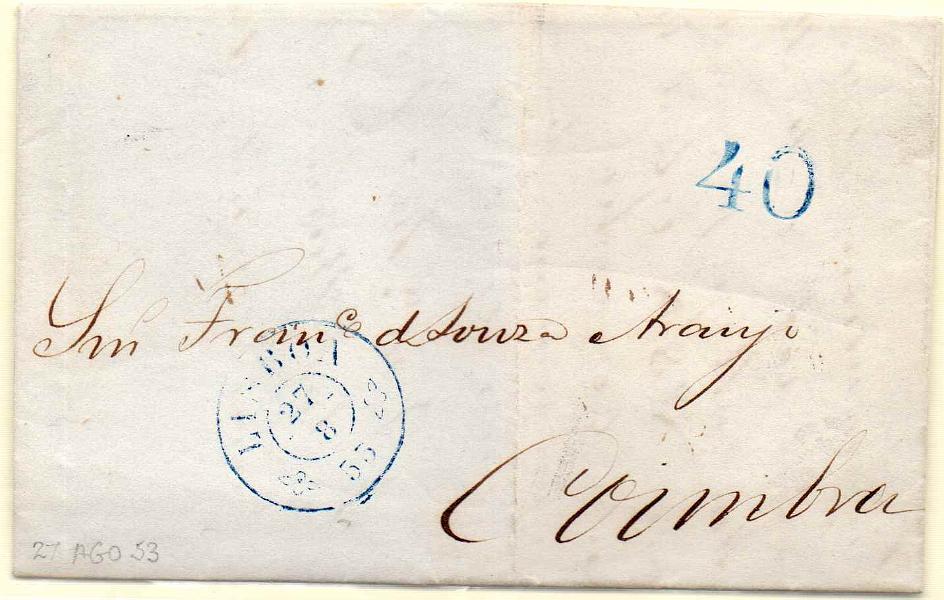 40
Snr Franco de Souza Araujo
LISBOA
27
8
53
Coimbra
27 AGO 53